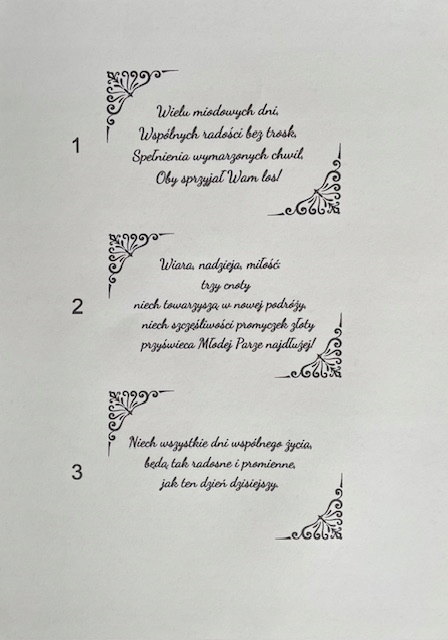 1
Wielu miodowych dni,
Wspólnych radości bez trosk,
Spełnienia wymarzonych chwil,
Oby sprzyjał Wam los!
2
Wiara, nadzieja, miłość:
trzy cnoty
niech towarzyszą w nowej podróży,
niech szczęśliwości promyczek złoty
przyświeca Młodej Parze najdłużej!
3
Niech wszystkie dni wspólnego życia,
będą tak radosne i promienne,
jak ten dzień dzisiejszy.